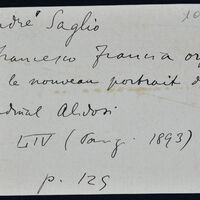 10
ndré Saglio
Francesco Francia or
le nouveau portrait d
rdinal Alidosi
LIV (Paris. 1893)
p. 125